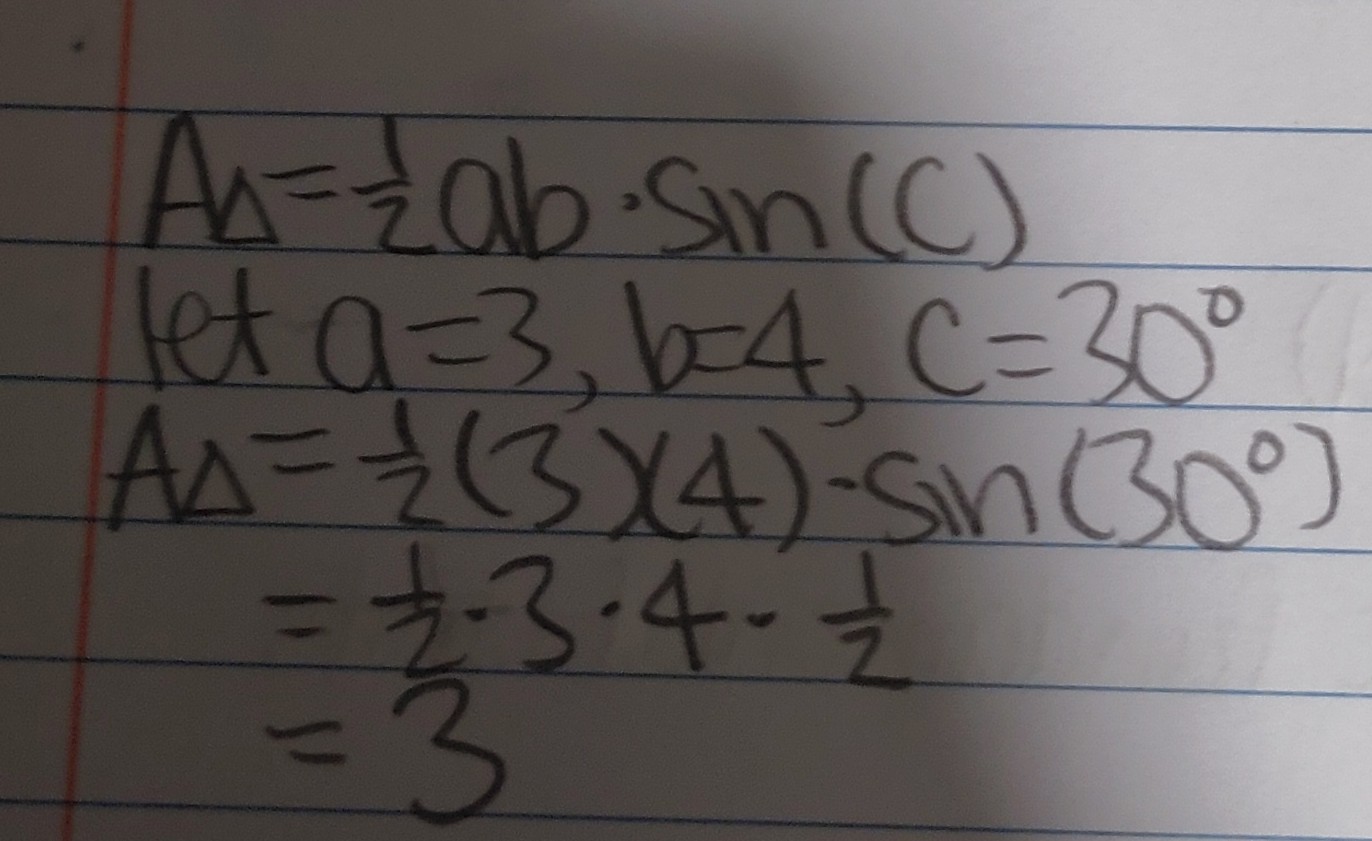 A△ = ½ab · sin(C)
let a = 3, b = 4, C = 30°
A△ = ½(3)(4) · sin(30°)
= ½ · 3 · 4 · ½
= 3